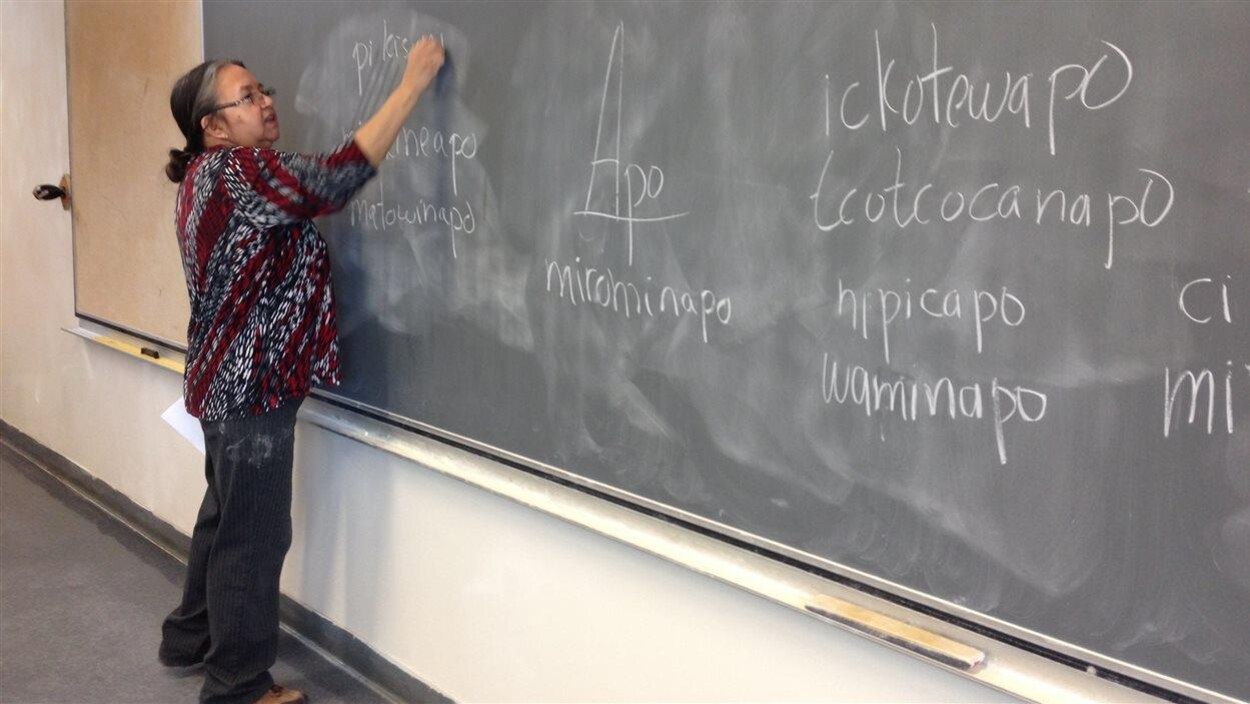 matowinapo
Apo
mirominapo
ickotewapo
tcotcocanapo
nipicapo
waminapo
ci